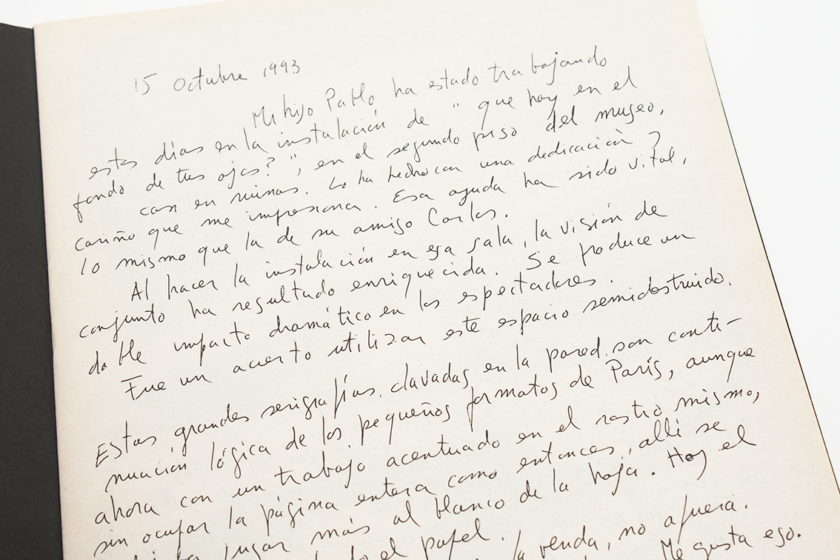 15 octubre 1993
Mi hijo Pablo ha estado trabajando
estos días en la instalación de "que hay en el
fondo de tus ojos?", en el segundo piso del museo,
casi en ruinas. Lo ha hecho con una dedicación y
cariño que me impresiona. Esa ayuda ha sido vital,
lo mismo que la de su amigo Carlos.
Al hacer la instalación en esa sala, la visión de
conjunto ha resultado enriquecida. Se produce un
doble impacto dramático en los espectadores.
Fue un acierto utilizar este espacio semidestruido.
Estas grandes serigrafías, clavadas en la pared son conti-
nuación lógica de los pequeños formatos de París, aunque
ahora con un trabajo acentuado en el rostro mismo,
sin ocupar la página entera como entonces, allí se
lugar más al blanco de la hoja. Hoy el
el papel. la venda, no afuera.
Me gusta eso.